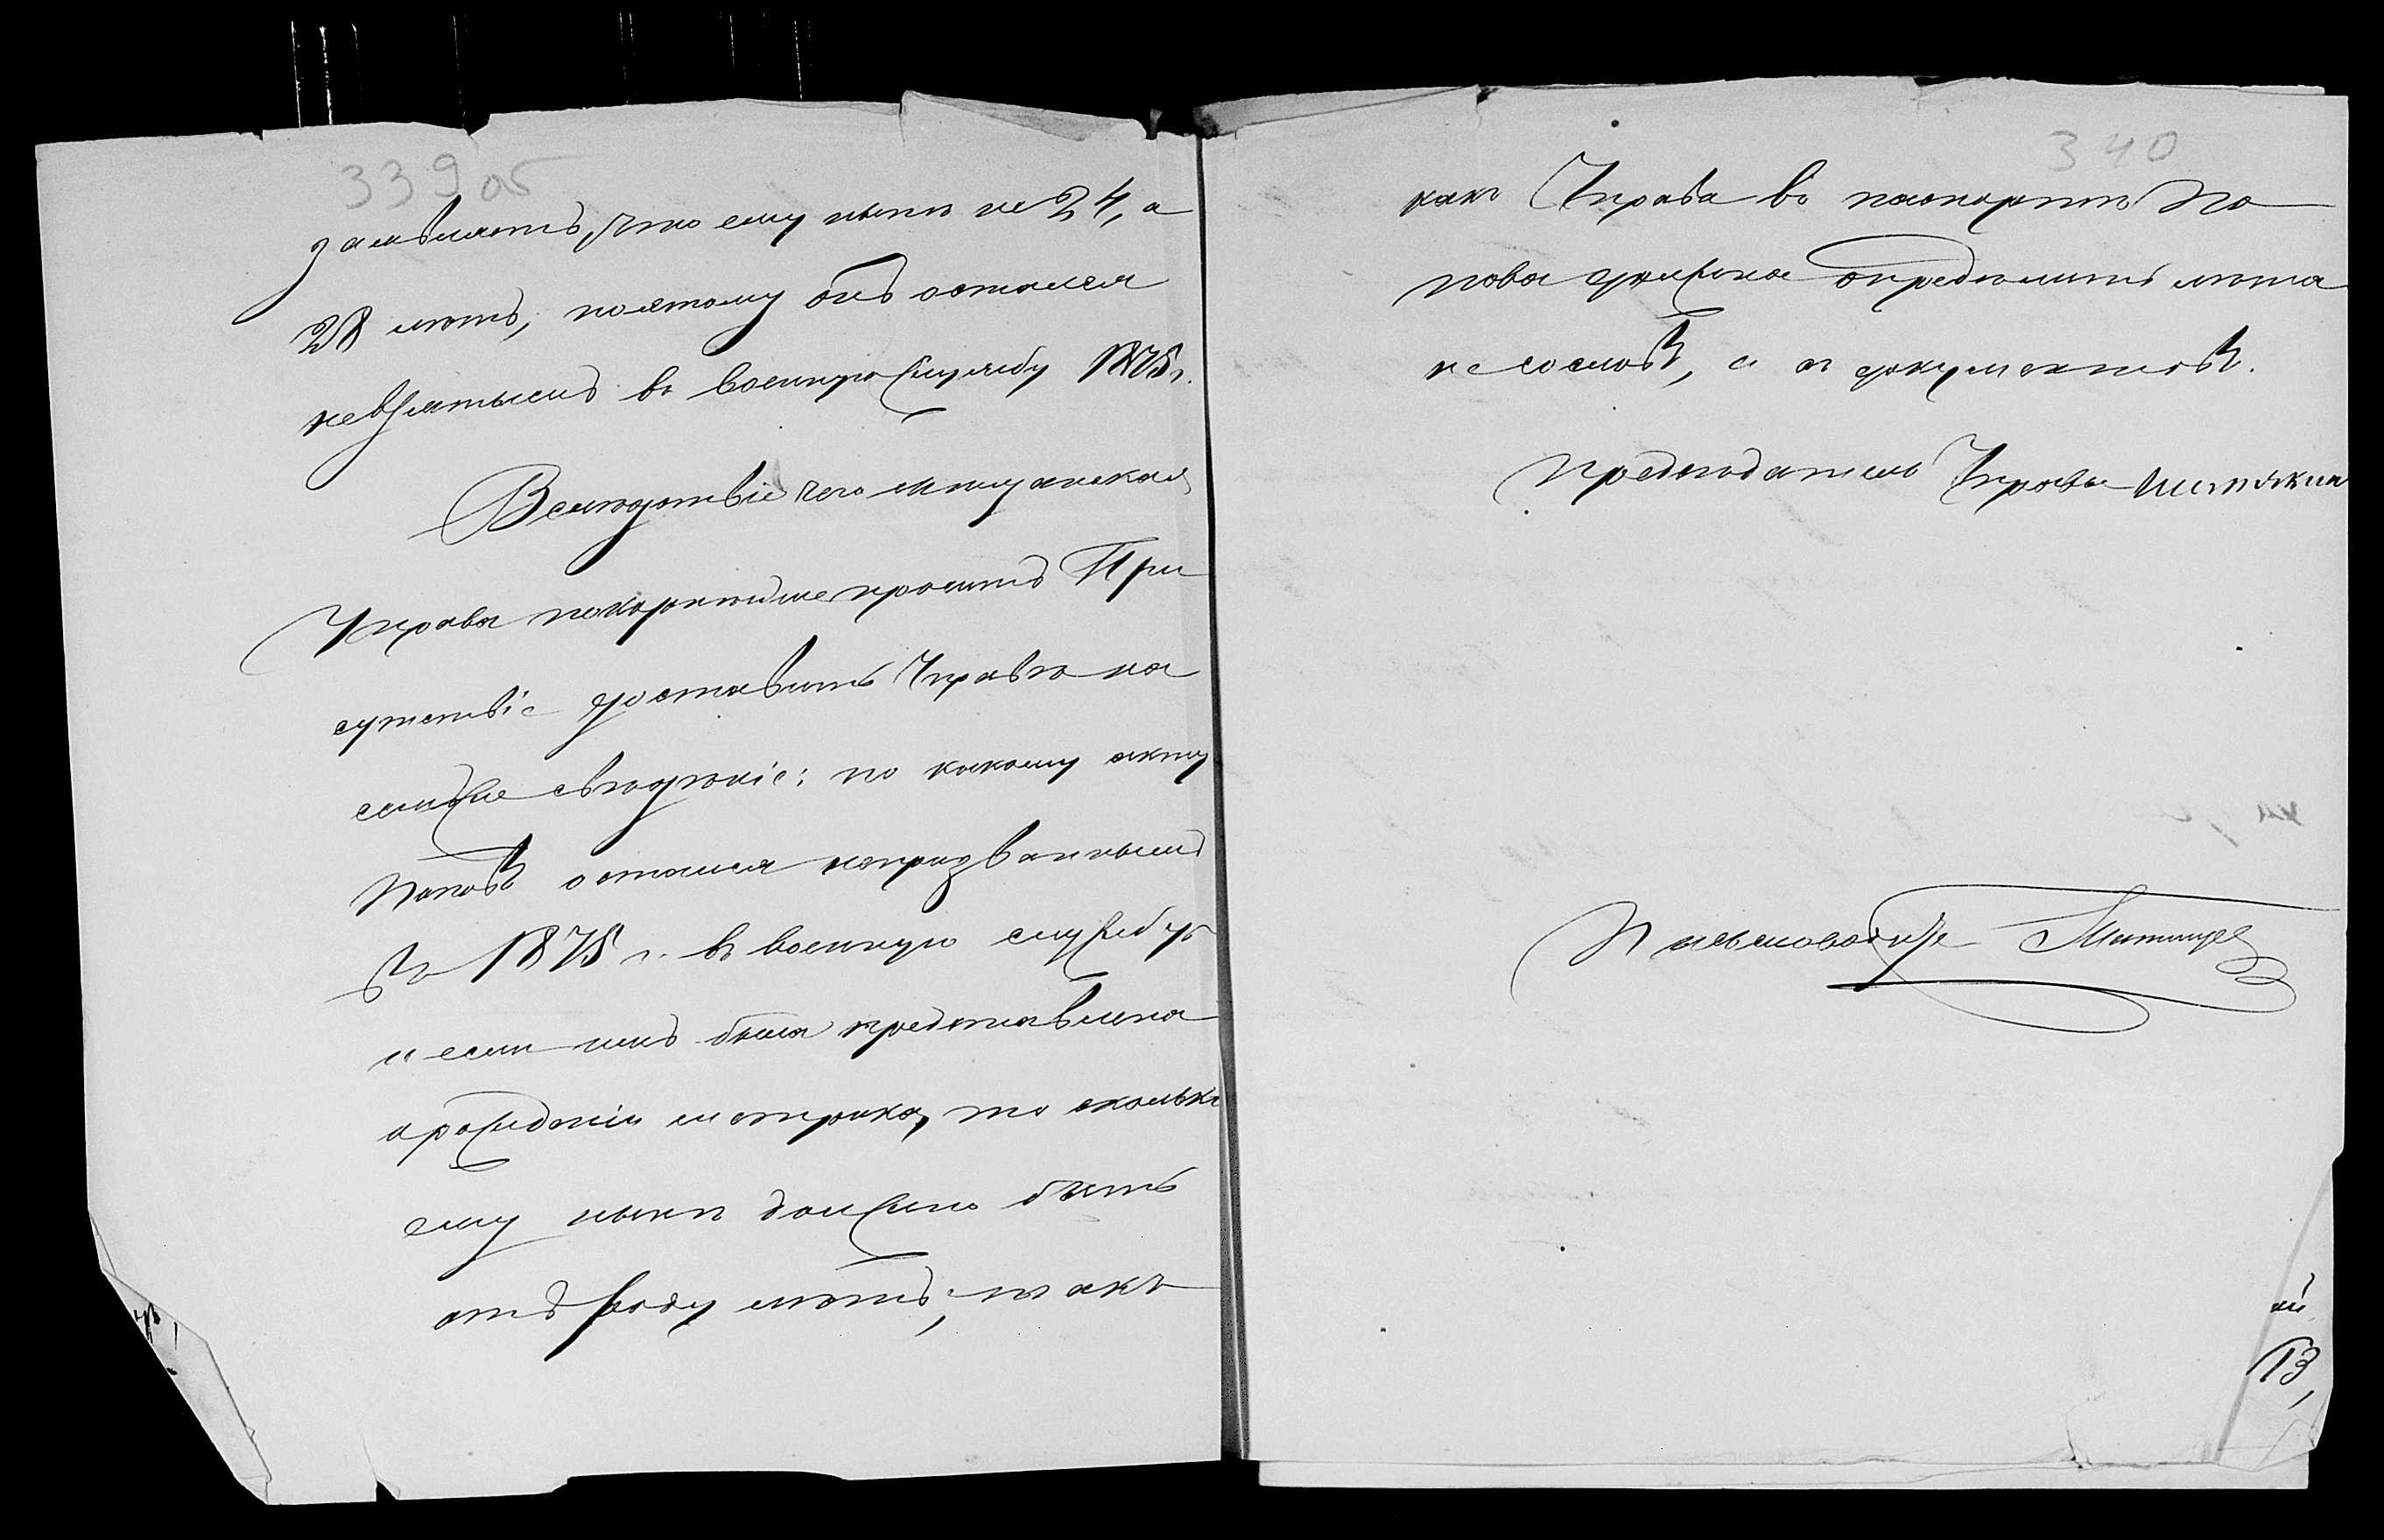 339 об
заявляетъ, что ему нынѣ не 24, а
28 лѣтъ, поэтому онъ остался
невзятымъ въ военную службу 1875 г.
Вслѣдствіе чего мѣщанская
Управа покорнѣйше проситъ При
сутствіе доставить Управѣ на
свѣдѣніе: по какому акту
Поповъ остался непризваннымъ
въ 1875 г. въ военную службу
и если имъ была представлена
о рожденіи метрика, то сколько
ему нынѣ должно быть
отъ роду лѣтъ, такъ
340
какъ Управа въ паспортѣ По
пова должна опредѣлить лѣта
не со словъ, а съ документовъ.
Предсѣдатель Управы
Письмоводитель